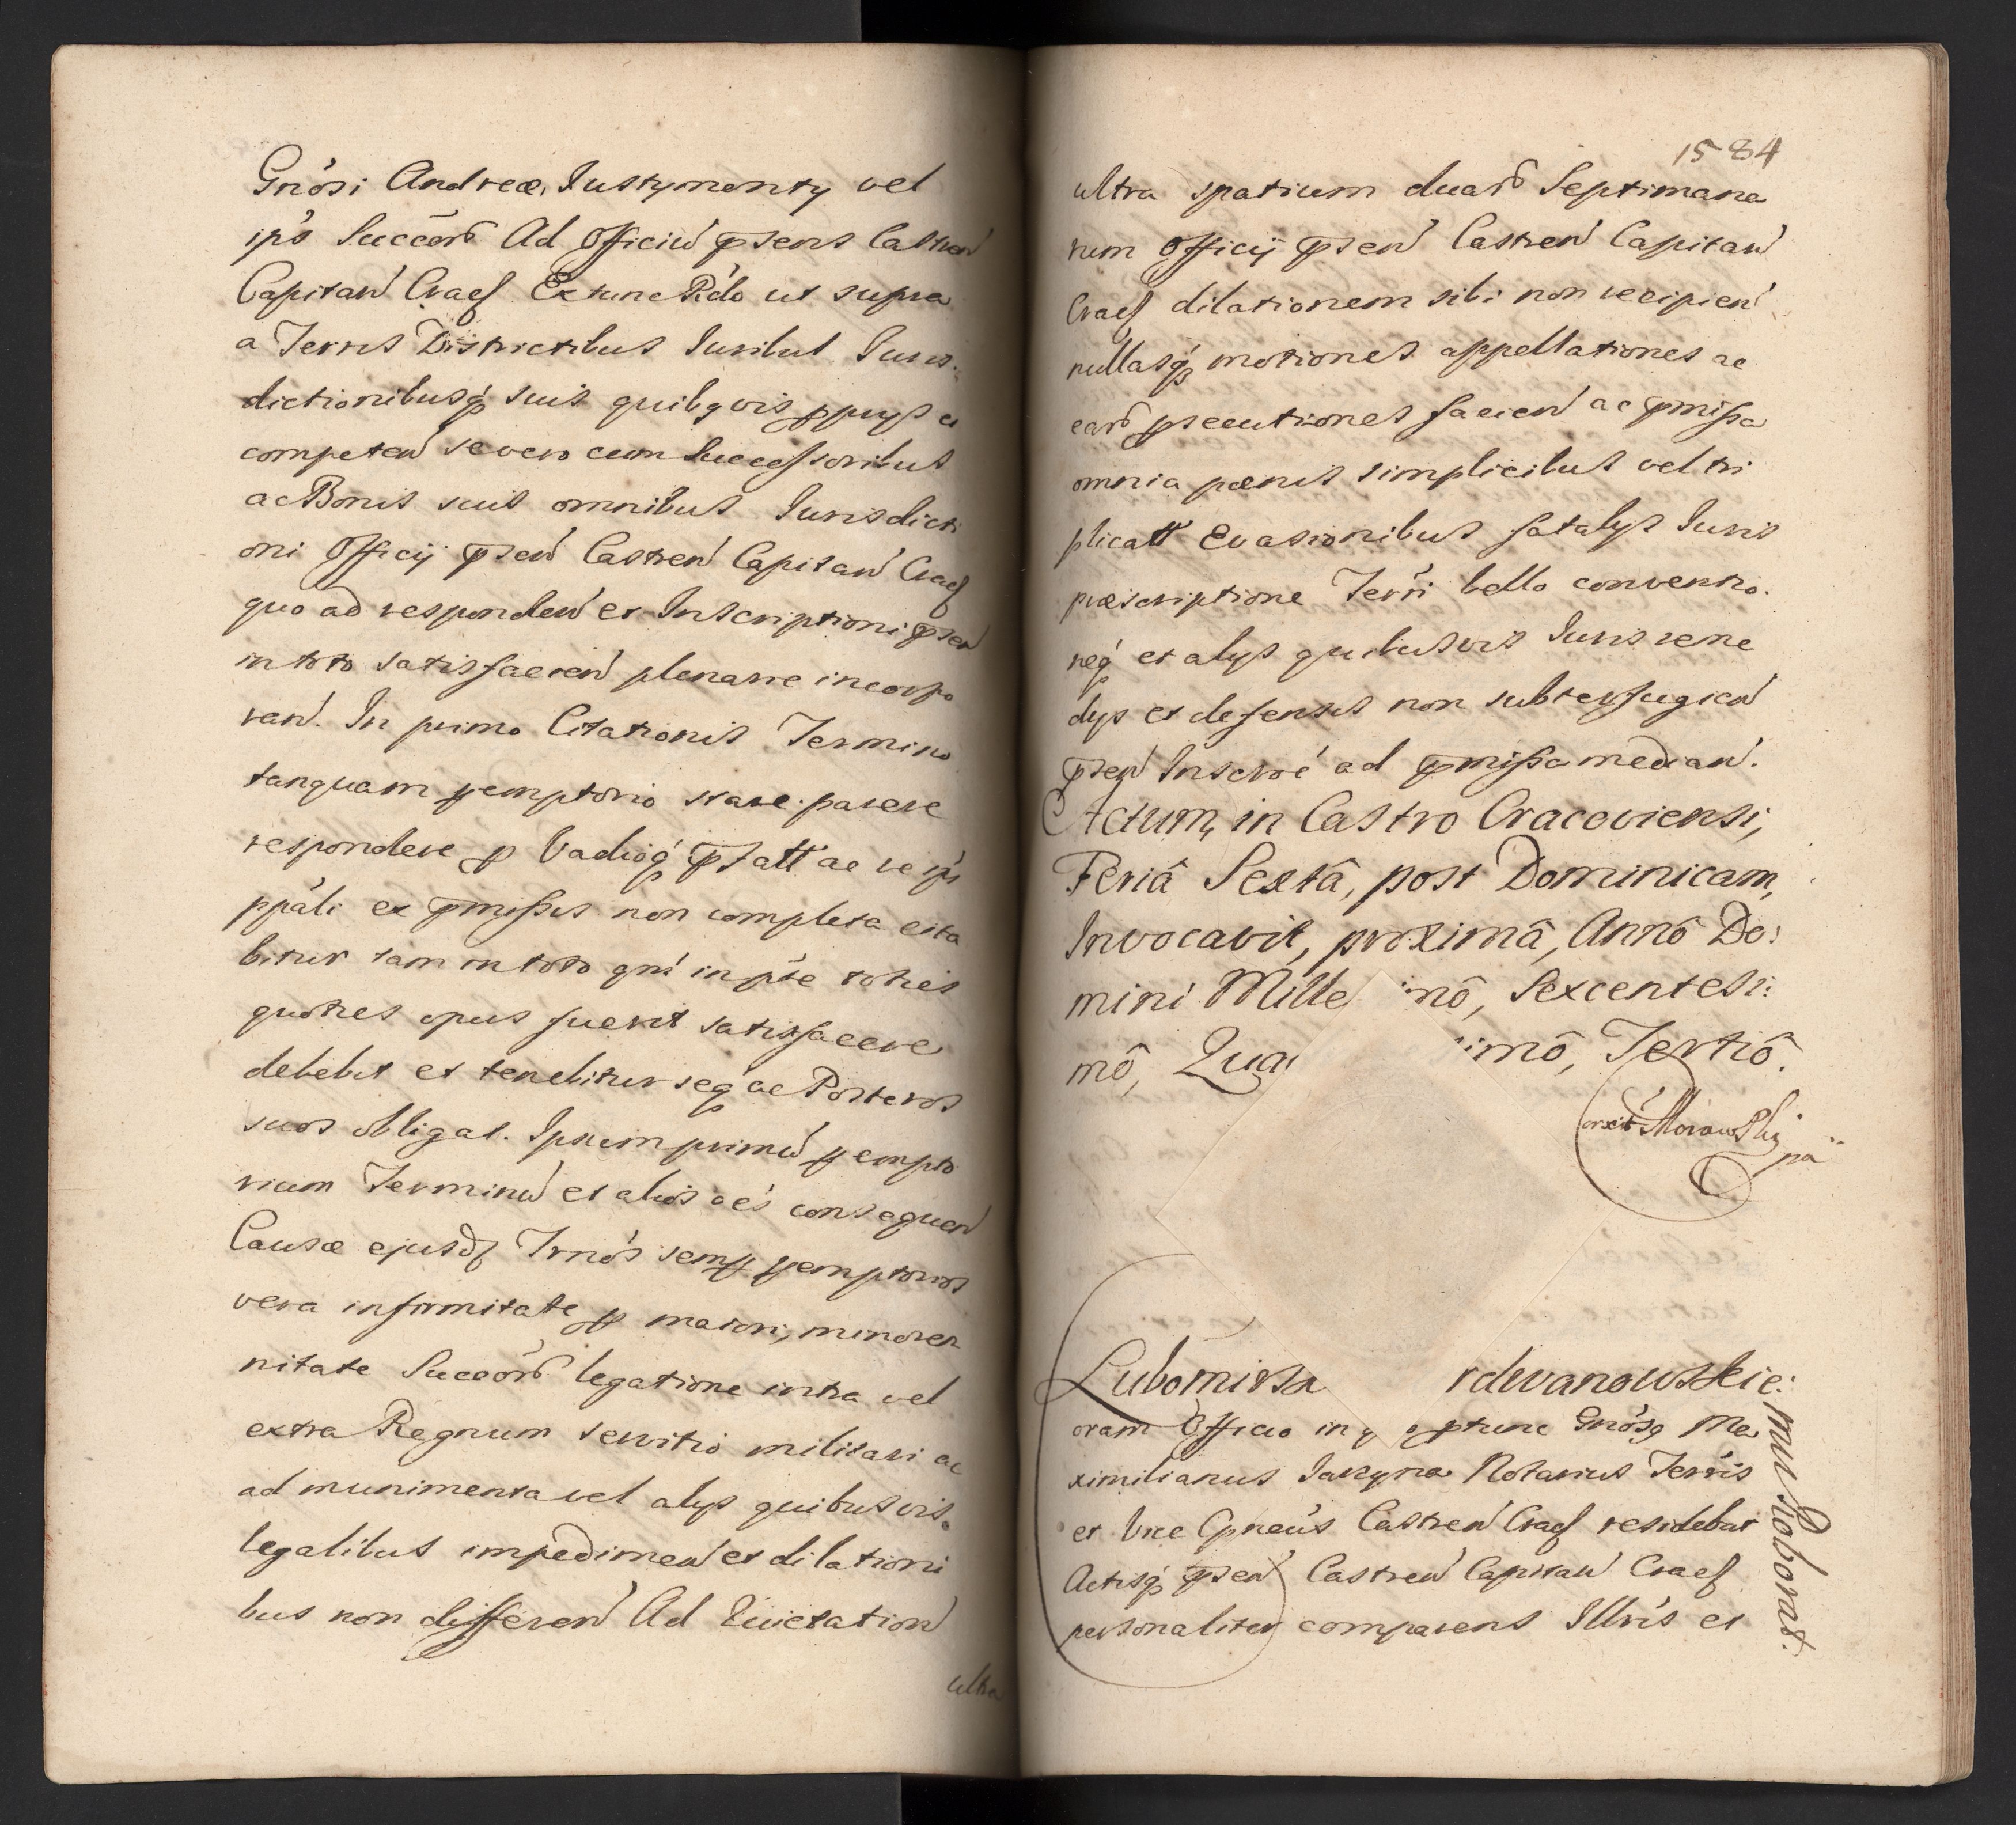 Gnosi Andreæ Iustymonty vel
ips Succōr Ad Officiu pn̄sens Castren
Capitan Cracs Extunc Pdo ut supra
a Terris Districtibus Iuribus Iuris
dictionibusq suis quibqvis ppryis ac
competen se vero cum Successoribus
ac Bonis suis omnibus Iurisdicti
oni Officij psen Castren Capitan Cracs
quo ad responden et Inscriptioni psen
in toto satisfacien plenarie incorpo
ran. In primo Citationis Termino
tanquam peremptorio stare parere
respondere p Vadioq pfatt ac re ips
ppali ex pmissis non completa cita
bitur tam in toto qm in pte toties
quoties opus fuerit satisfacere
debebit et tenebitur seq ac Posteros
suos obligat. Ipsum primu perempto
rium Terminu et alios oēs consequen
Causæ ejusd Trnos semp peremptorios
vera infirmitate p maiori, minoren
nitate Succōr legatione intra vel
extra Regnum servitio militari ac
ad munimenta vel alys quibusvis
legalibus impedimen et dilationi
bus non differen Ad Quietation
ultra
1584
ultra spatium duar Septimana
rum Officij psen Castren Capitan
Cracs dilationem sibi non recipien
nullasq motiones appellationes ac
ear psecutiones facien ac pmissa
omnia pœnis simplicibus vel tri
plicatt Evasionibus fatalys Iuris
præscriptione Terri bello convento.
neq et alys quibusvis Iuris reme
dys et defensis non subterfugien
psen Inscrōe ad pmissa median.
Actum, in Castro Cracoviensi,
Feriâ Sextâ, post Dominicam,
Invocavit, proximâ, Annô Do:
mini Mille inô, Sexcentesi:
mô, Qua imô, Tertiô.
Morawski
pa
Lubomirsa rdwanowskie:
mu Roborat.
oram Officio in ptunc Gnosq Ma
ximilianus Iaryna Notarius Terris
et Vice Cpneus Castren Cracs residebat
Actisq psen Castren Capitan Cracs
personaliter comparens Illris et